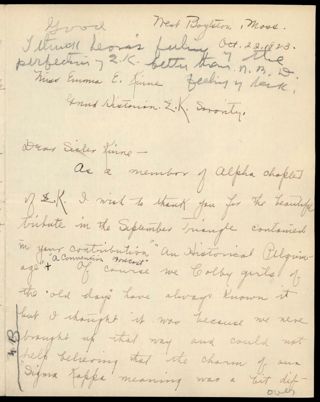 Good
West Boylston, Mass.
Oct. 22, 1923.
I think Leora's feeling of the
perfection of Σ.K. better than N. B. D.
feeling of lack.
Miss Emma E. Kinne
Grand Historian Σ.K. Sorority,
Dear Sister Kinne—
As a member of Alpha chapter
of Σ.K. I wish to thank you for the beautiful
tribute in the September Triangle contained
in your contribution "An Historical Pilgrim-
age" + "A Convention Portrait"
Of course we Colby girls of
the "old days" have always known it
but I thought it was because we were
brought up that way and could not
help believing that the charm of our
Sigma Kappa meaning was a bit dif-
over